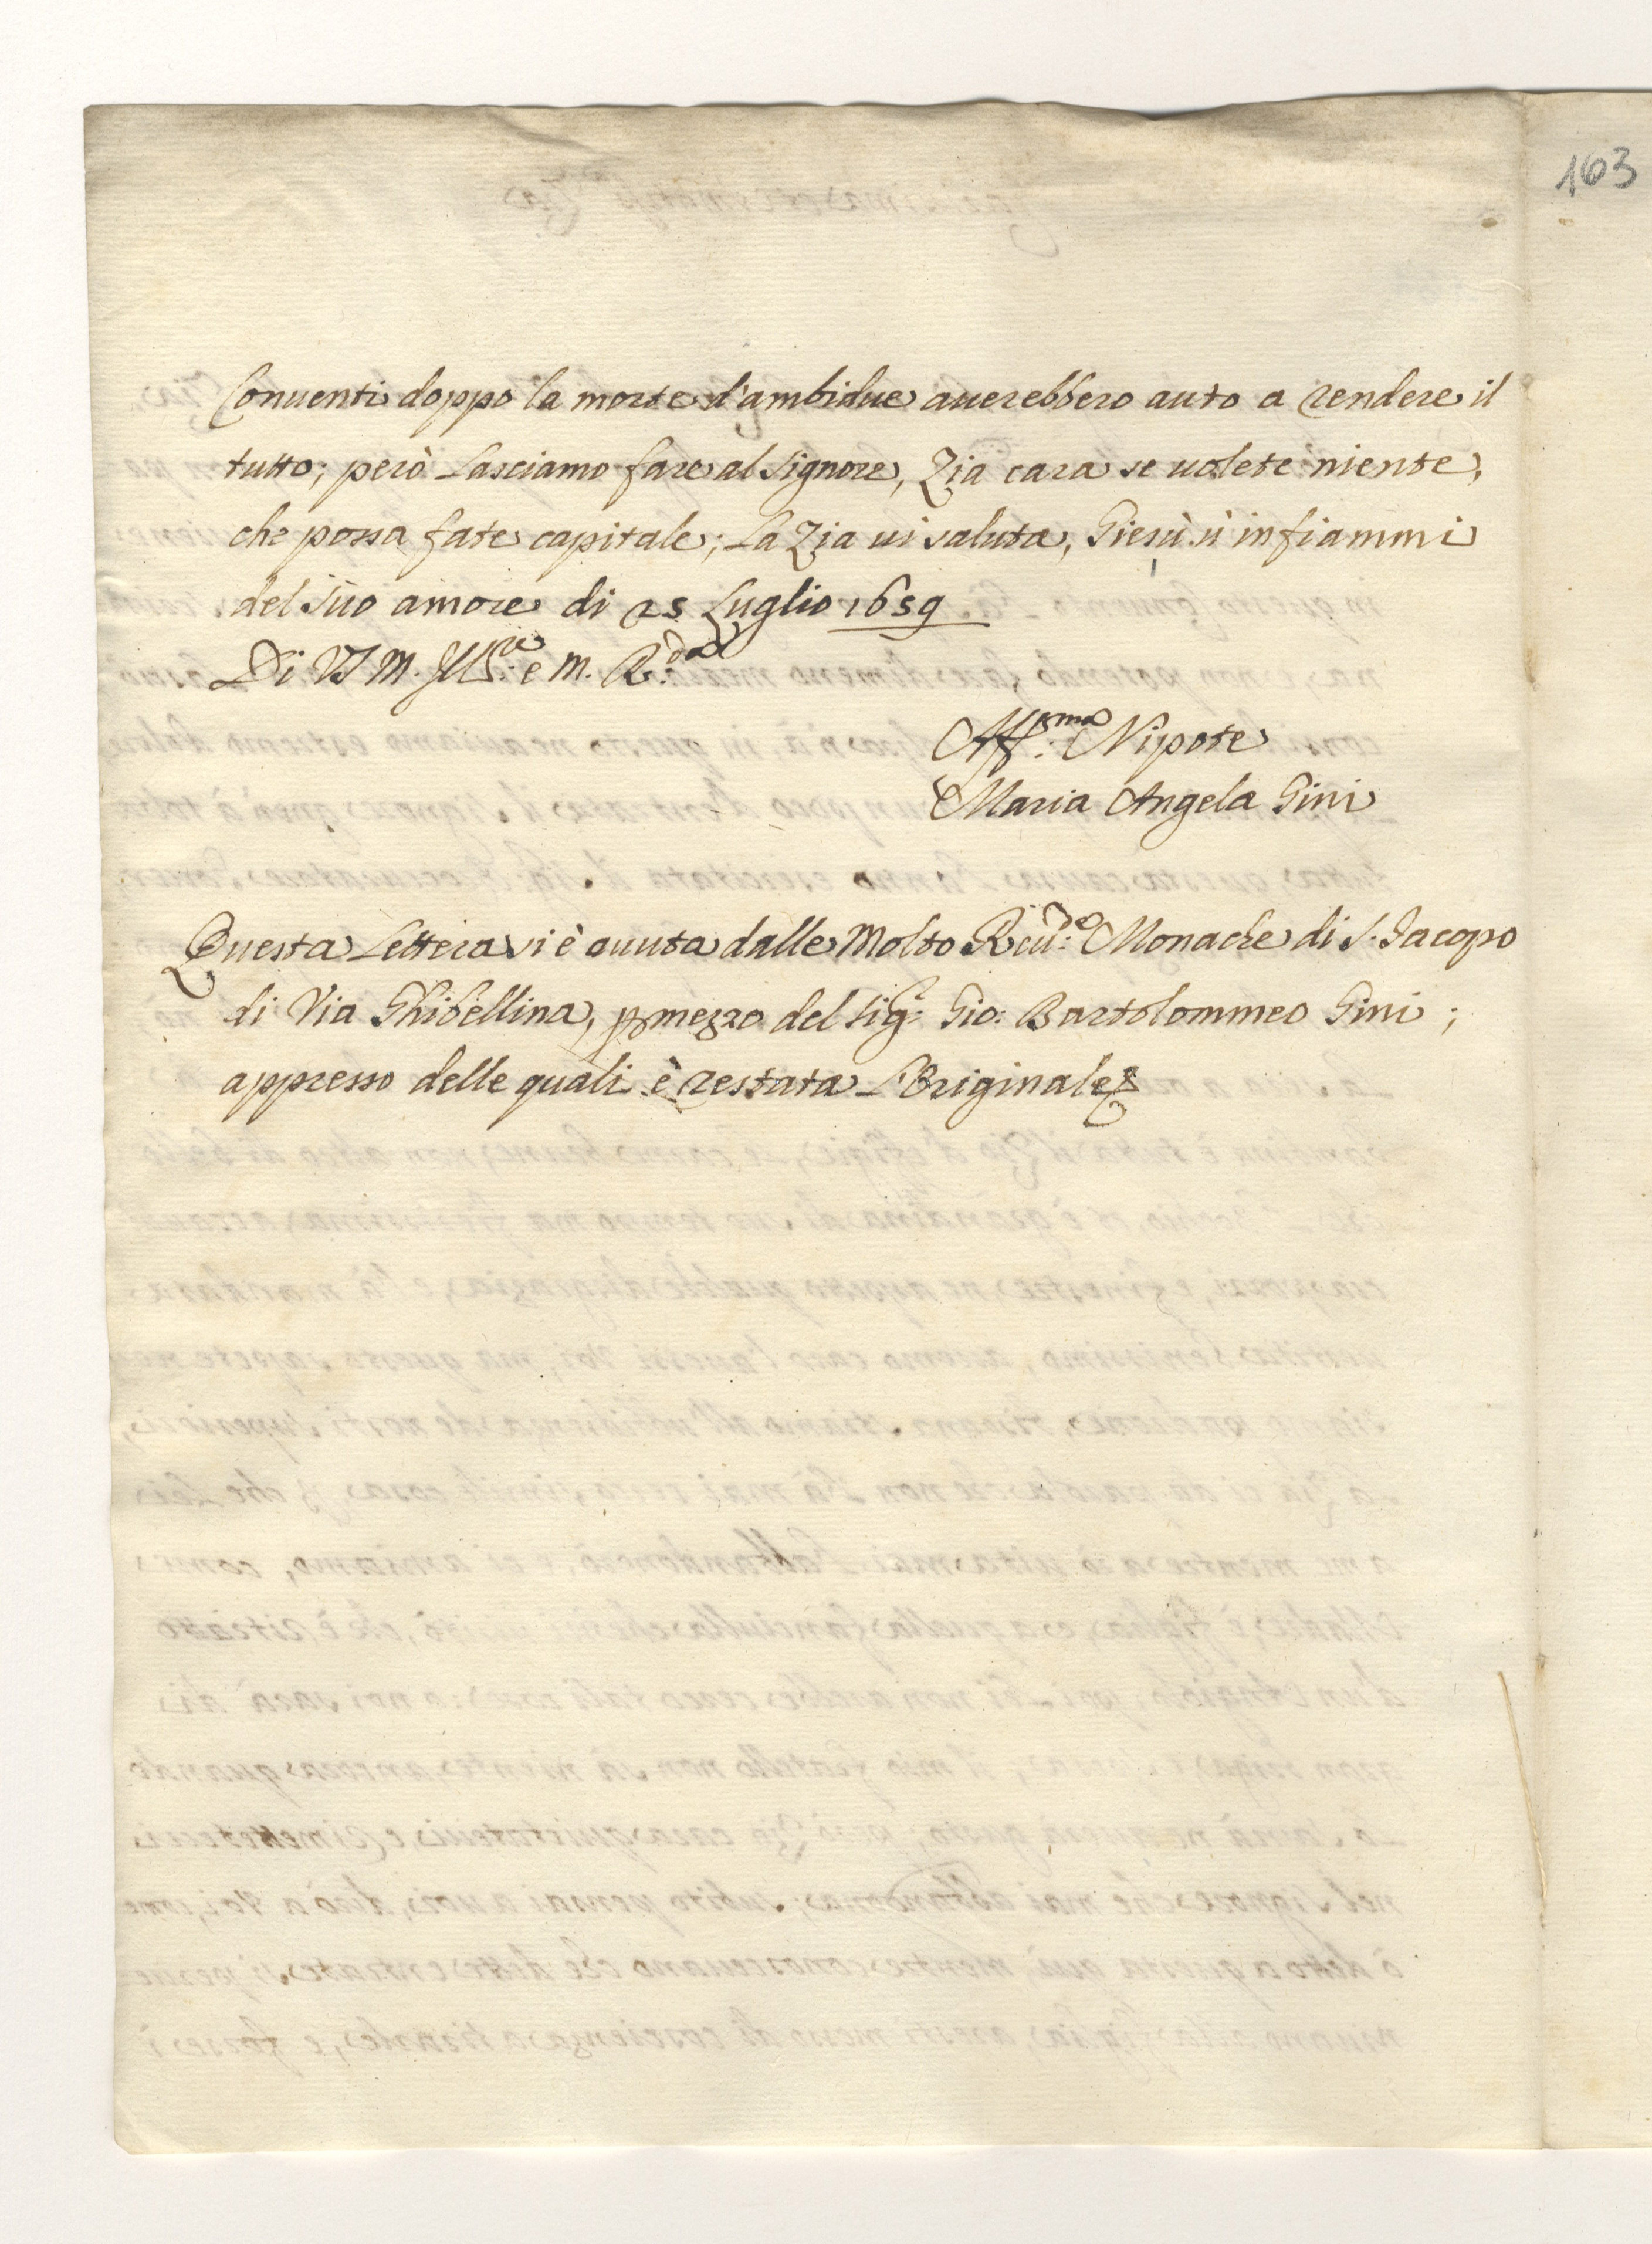 163
Conuenti doppo la morte d'ambidue auerebbero auto a rendere il
tutto; però Lasciamo fare al Signore, Zia cara se uolete niente,
che possa fate capitale; La Zia ui saluta, Giesù ui infiammi
del suo amore di 25 Luglio 1659
Di VS M. Ill:re e M. R:da
Aff:ma Nipote
Maria Angela Gini
Questa Lettera si è auuta dalle Molto Reu:de Monache di S. Jacopo
di Via Ghibellina, p mezzo del Sig: Gio: Bartolommeo Gini;
appresso delle quali è restata L'Originale